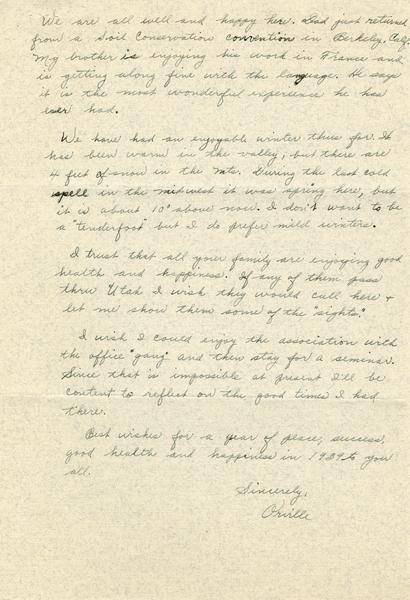 We are all well and happy here. Dad just returned
from a Soil Conservation convention in Berkeley, Calif.
My brother is enjoying his work in France and
is getting along fine with the language. He says
it is the most wonderful experience he has
ever had.
We have had an enjoyable winter thus far. It
has been warm in the valley, but there are
4 feet of snow in the mts. During the last cold
spell in the midwest it was spring here, but
it is about 10° above now. I don't want to be
a "tenderfoot" but I do prefer mild winters.
I trust that all your family are enjoying good
health and happiness. If any of them pass
thru Utah I wish they would call here &
let me show them some of the "sights."
I wish I could enjoy the association with
the office "gang" and then stay for a seminar.
Since that is impossible at present I'll be
content to reflect on the good times I had
there.
Best wishes for a year of peace, success,
good health and happiness in 1939 to you
all.
Sincerely,
Orville